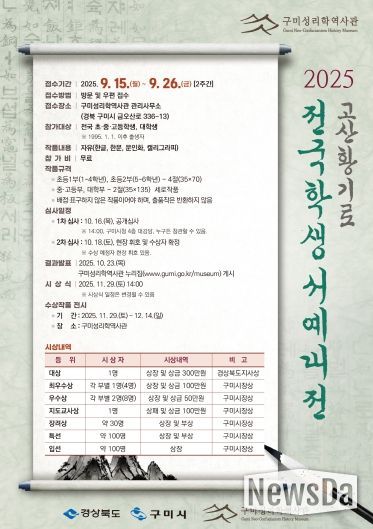 구미성리학역사관
Gumi Neo-Confucianism History Museum
2025
고산황기로
전국학생서예대전
접수기간 | 2025. 9. 15.(월) ~ 9. 26.(금) [2주간]
접수방법 | 방문 및 우편 접수
접수장소 | 구미성리학역사관 관리사무소
(경북 구미시 금오산로 336-13)
참가대상 | 전국 초·중·고등학생, 대학생
※ 1995. 1. 1. 이후 출생자
작품내용 | 자유(한글, 한문, 문인화, 캘리그라피)
참 가 비 | 무료
작품규격
· 초등1부(1~4학년), 초등2부(5~6학년) - 4절(35×70)
· 중·고등부, 대학부 - 2절(35×135) 세로작품
· 배접·표구하지 않은 작품이어야 하며, 출품작은 반환하지 않음
심사일정
· 1차 심사 : 10. 16.(목), 공개심사
※ 14:00, 구미시청 4층 대강당, 누구든 참관할 수 있음.
· 2차 심사 : 10. 18.(토), 현장 휘호 및 수상자 확정
※ 수상 예정자 현장 휘호 있음.
결과발표 | 2025. 10. 23.(목)
구미성리학역사관 누리집(www.gumi.go.kr/museum) 게시
시 상 식 | 2025. 11. 29.(토) 14:00
※ 시상식 일정은 변경될 수 있음
수상작품 전시
· 기 간 : 2025. 11. 29.(토) ~ 12. 14.(일)
· 장 소 : 구미성리학역사관
시상내역
등 위 시 상 자 시상내역 비 고
대상 1명 상장 및 상금 300만원 경상북도지사상
최우수상 각 부별 1명(4명) 상장 및 상금 100만원 구미시장상
우수상 각 부별 2명(8명) 상장 및 상금 50만원 구미시장상
지도교사상 1명 상패 및 상금 100만원 구미시장상
장려상 약 30명 상장 및 부상 구미시장상
특선 약 100명 상장 및 부상 구미시장상
입선 약 100명 상장 구미시장상
경상북도
구미시
구미성리학역사관
NewsDa